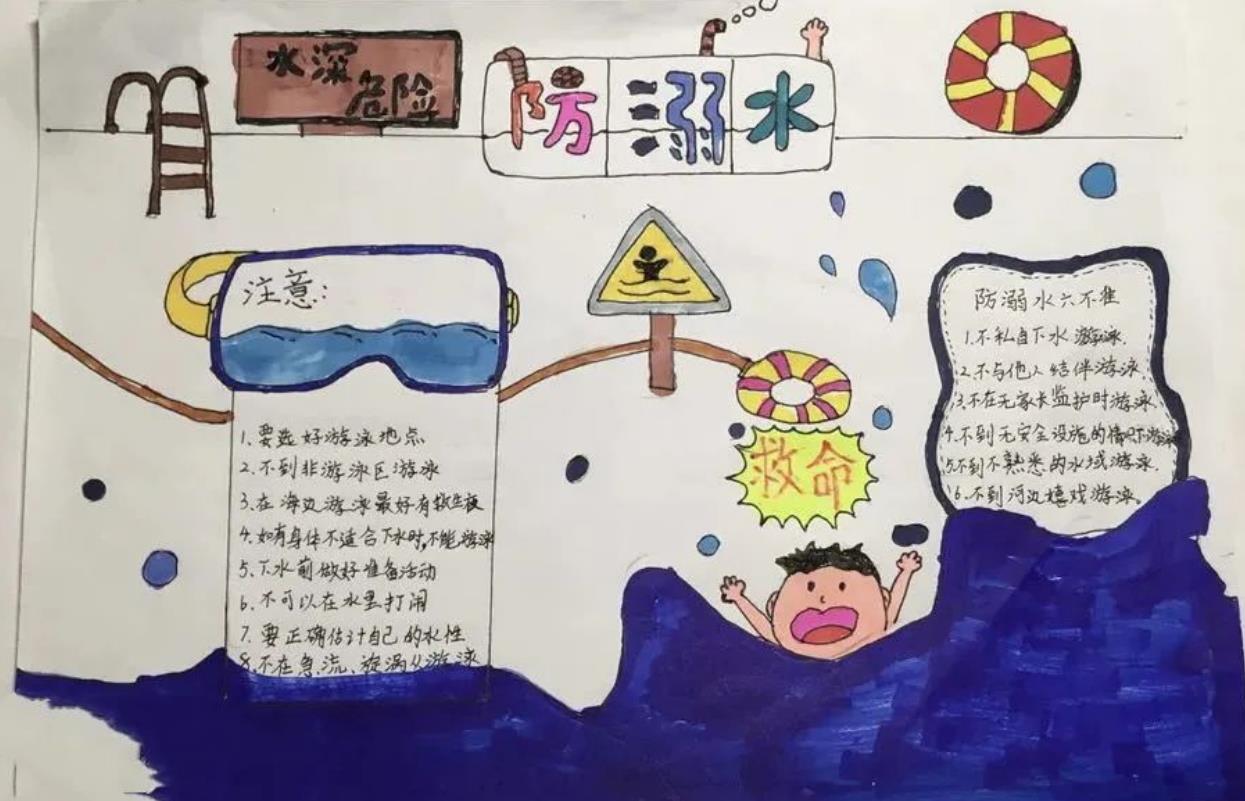 水深
危险
防溺水
注意:
1、要选好游泳地点
2、不到非游泳区游泳
3、在海边游泳最好有救生艇
4、如有身体不适合下水时,不能游泳
5、下水前做好准备活动
6、不可以在水里打闹
7、要正确估计自己的水性
8、不在急流、旋涡处游泳
救命
防溺水六不准
1.不私自下水游泳.
2.不与他人结伴游泳
3.不在无家长监护时游泳
4.不到无安全设施的情况下游泳
5.不到不熟悉的水域游泳.
6.不到河边嬉戏游泳。